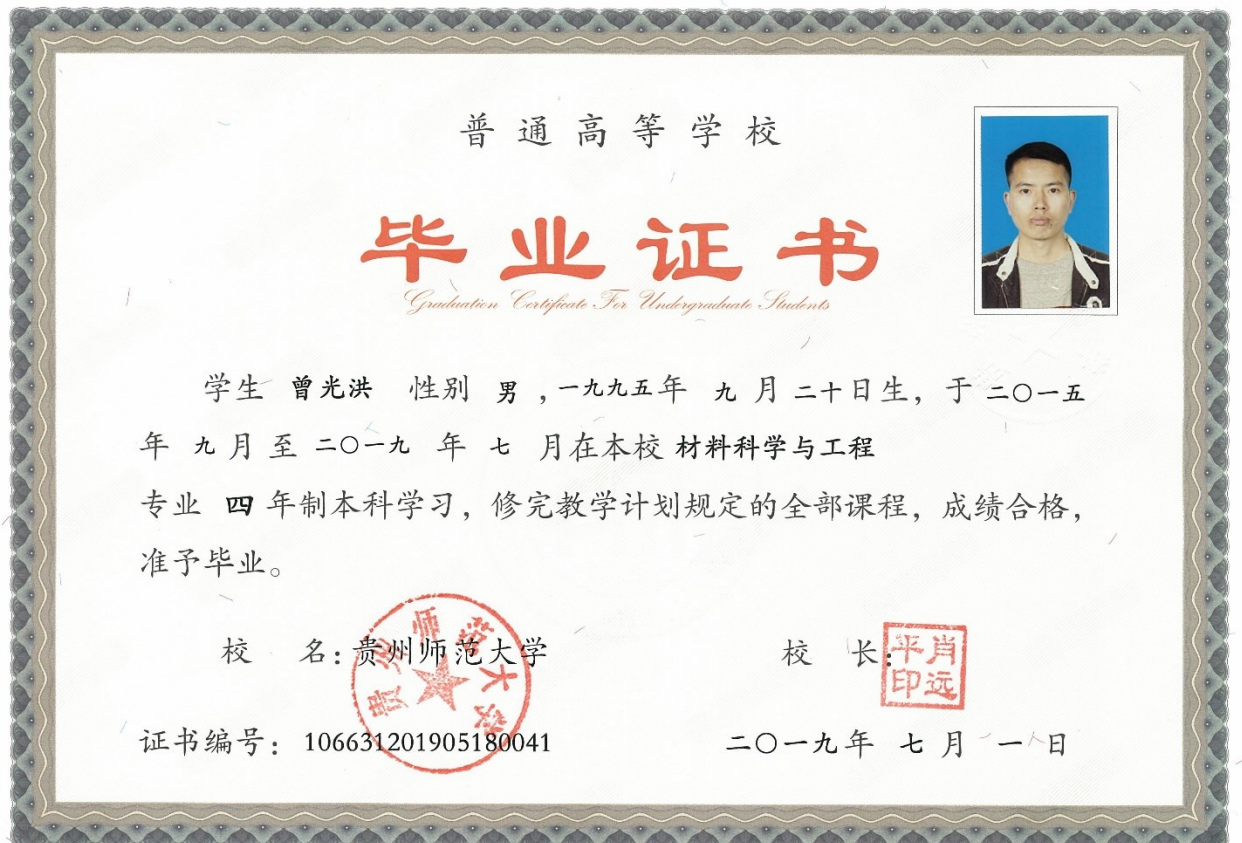 普通高等学校
毕业证书
Graduation Certificate For Undergraduate Students
学生 曾光洪 性别 男 ,一九九五年 九 月 二十日生, 于 二〇一五
年 九 月 至 二〇一九 年 七 月在本校 材料科学与工程
专业 四 年制本科学习, 修完教学计划规定的全部课程, 成绩合格,
准予毕业。
校 名: 贵州师范大学 校 长:
贵州师范大学
肖远平印
证书编号: 106631201905180041 二〇一九年 七 月 一 日